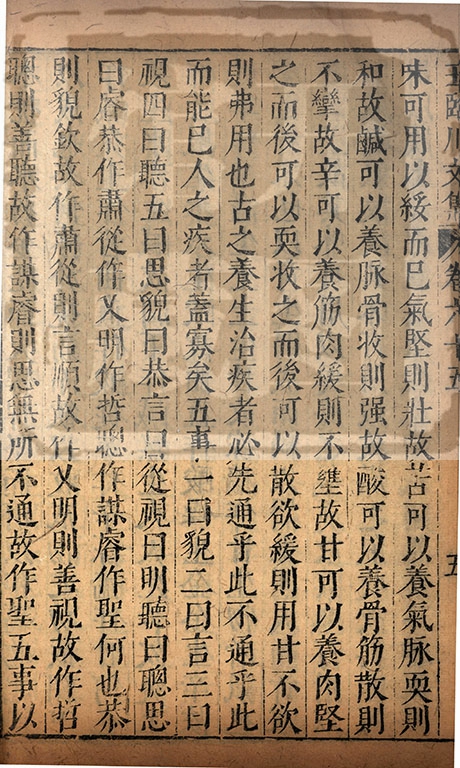 王臨川文集 卷六十五 五
味可用以緩而已氣堅則壯故苦可以養氣脉耎則
和故鹹可以養脉骨收則强故酸可以養骨筋散則
不攣故辛可以養筋肉緩則不壅故甘可以養肉堅
之而後可以耎收之而後可以散欲緩則用甘不欲
則弗用也古之養生治疾者必先通乎此不通乎此
而能已人之疾者蓋寡矣五事一曰貌二曰言三曰
視四曰聽五曰思貌曰恭言曰從視曰明聽曰聰思
曰睿恭作肅從作乂明作哲聰作謀睿作聖何也恭
則貌欽故作肅從則言順故作乂明則善視故作哲
聰則善聽故作謀睿則思無所不通故作聖五事以